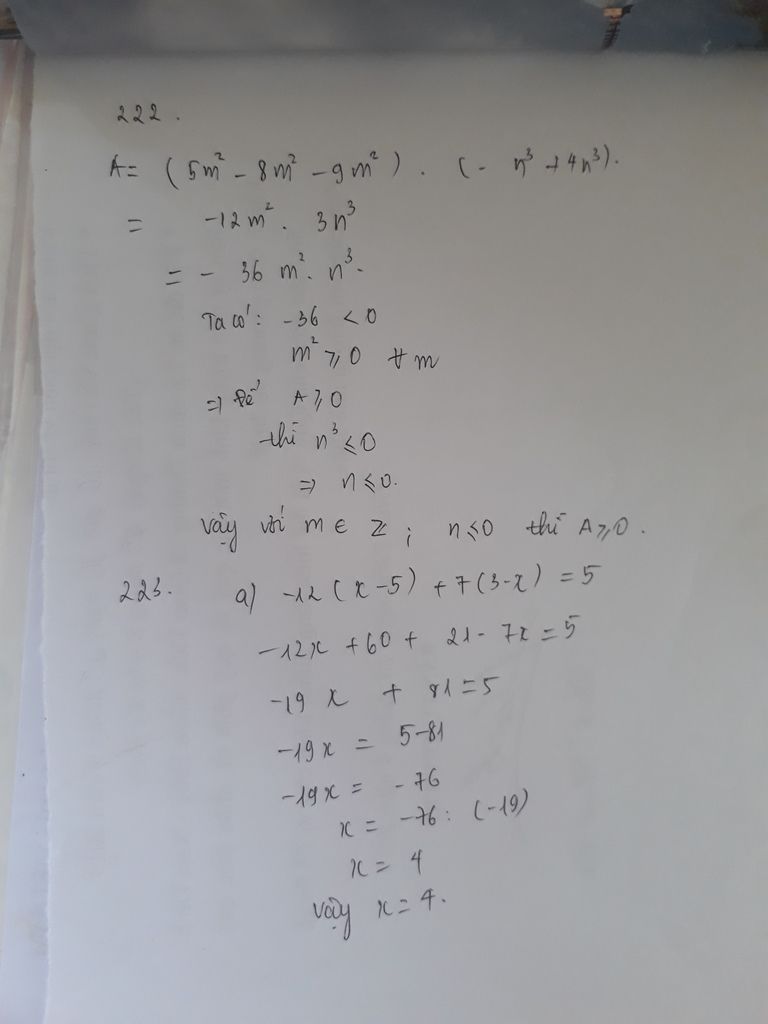 222.
A = (5m² - 8m² - 9m²) . (- n³ + 4n³).
= -12m² . 3n³
= - 36 m² . n³.
Ta có: -36 < 0
m² ⩾ 0 ∀ m
=> Để A ⩾ 0
thì n³ ⩽ 0
=> n ⩽ 0.
Vậy với m ∈ Z ; n ⩽ 0 thì A ⩾ 0.
223. a) -12 (x - 5) + 7 (3 - x) = 5
-12x + 60 + 21 - 7x = 5
-19 x + 81 = 5
-19x = 5 - 81
-19x = - 76
x = -76 : (-19)
x = 4
Vậy x = 4.